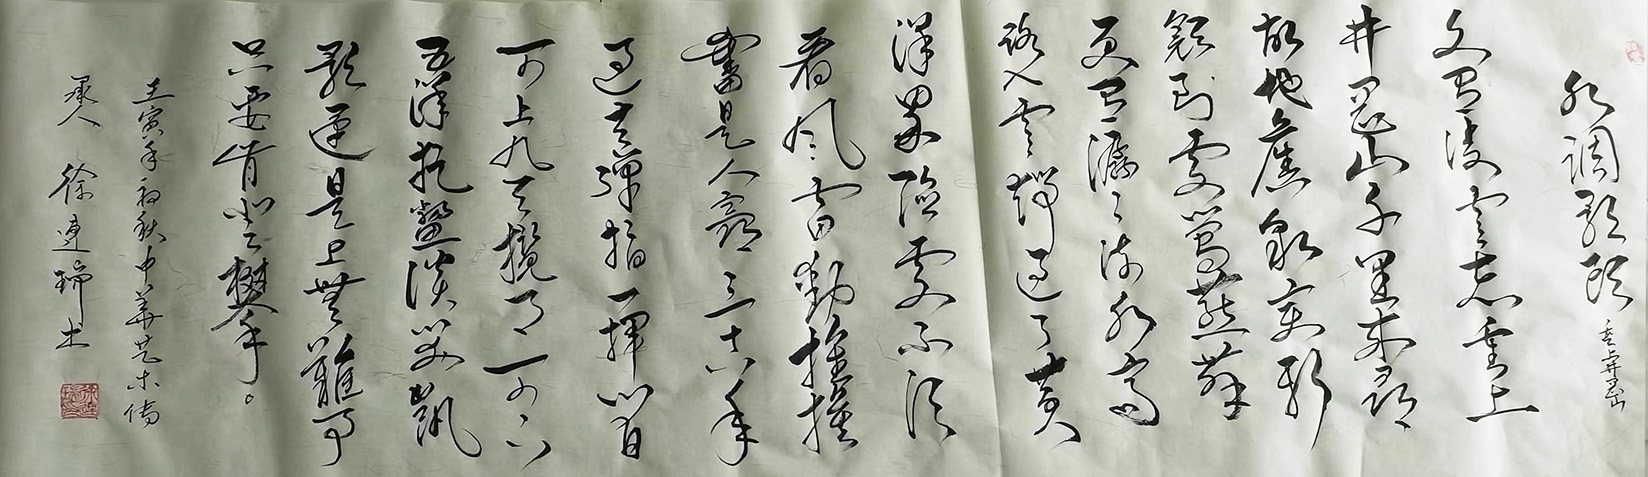 水调歌頭 重上井岡山
久有凌雲志重上
井岡山千里来尋
故地舊貌变新
颜到處鶯燕舞
更有潺潺流水高
路入雲端过了黄
洋界险處不须
看风雷動旌旗
奮是人寰三十八年
过去弹指一挥间
可上九天攬月可下
五洋捉鱉谈笑凯
歌还是上無難事
只要肯登攀。
壬寅年初秋中华艺术传
承人 徐連瑞书